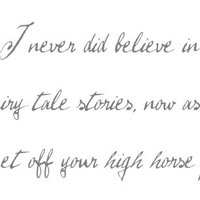 I never did believe in
iry tale stories, now as
et off your high horse